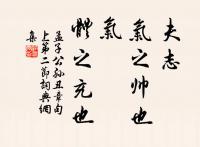 夫志
氣之帥也
氣
體之充也
孟子公孫丑章句
上第二節詞典網
集